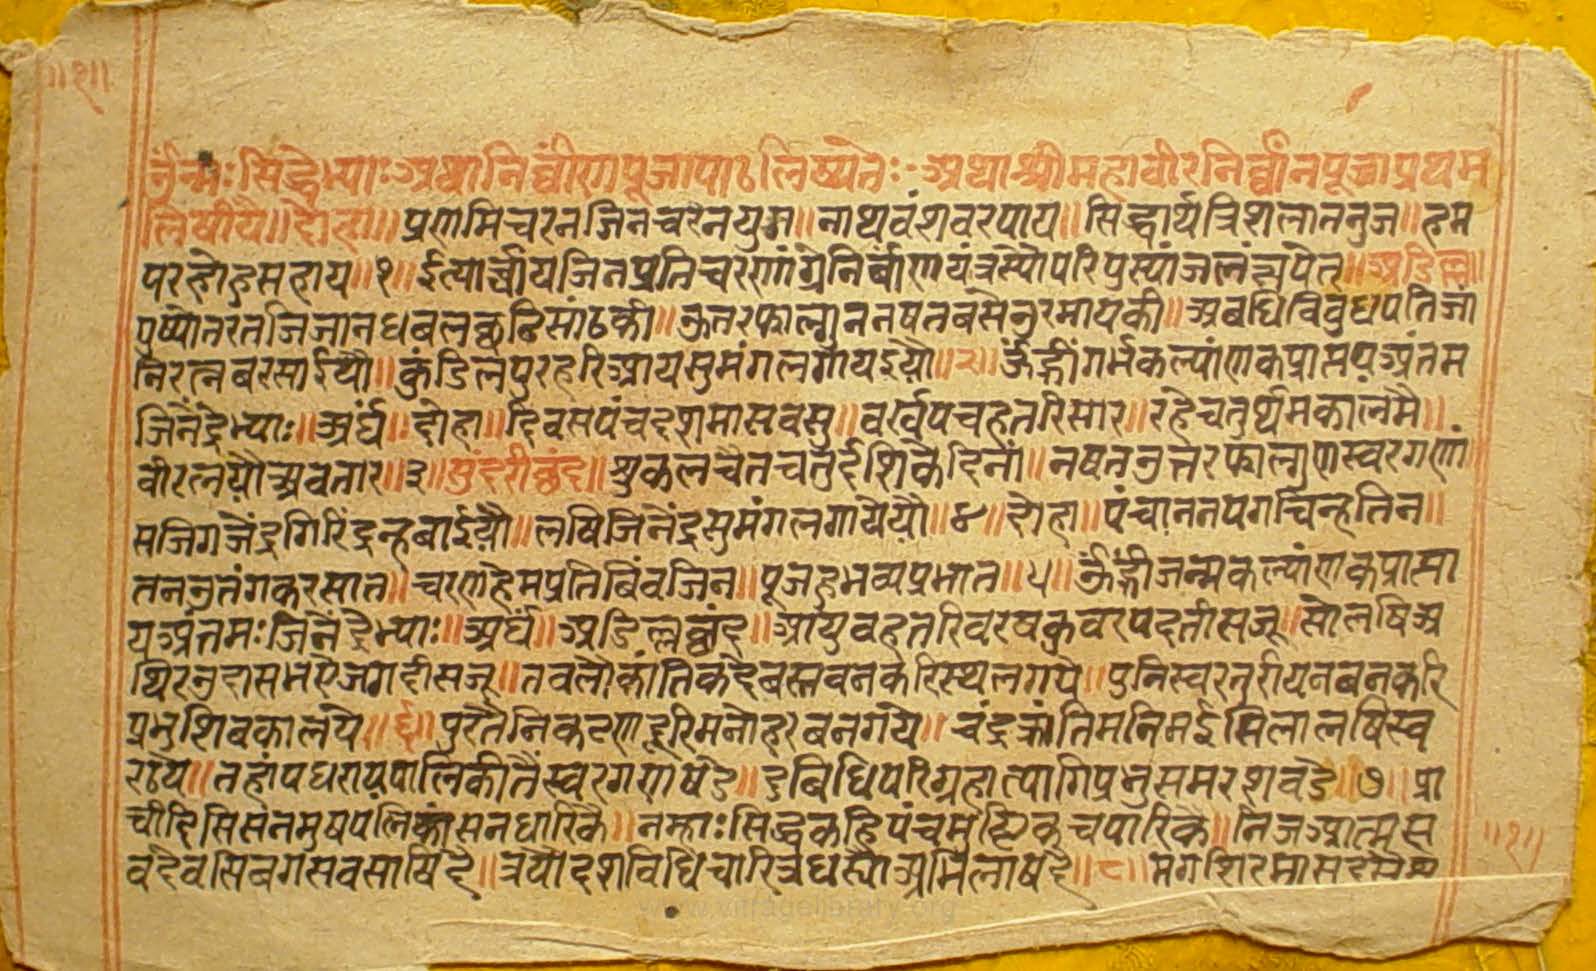 ॥१॥
ॐनमः सिद्धेभ्याः अथा निर्व्वाणपूजापाठ लिख्यतेः अथा श्रीमहावीरनिर्व्वानपूजा प्रथम
लिषीयै॥ दोहा॥ प्रणमि चरन जिन चरैनयुग॥ नाथवंश वरपाय॥ सिद्धार्थ त्रिशलातनुज॥ हम
पर होहु सहाय॥१॥ ईत्यार्च्चाय जिनप्रतिचरणांग्रे निर्बाण यंत्रस्योपरि पुस्पांजलं क्षपेत्॥ अडिल्ल॥
पुष्पोतर तजि जान धबल छठि सांठकी॥ ऊतर फाल्गुन नषत बसे नुर मायकी॥ अबधि विवुधपति जा
नि रत्न बरसाईयौ॥ कुंडिलपुर हरि आय सुमंगल गायइयौ॥२॥ ॐह्रीं गर्भकल्यांणकप्राप्ताय अंतम
जिनेंद्रेभ्याः॥ अर्घं॥ दोहा॥ दिवस पंचदश मास वसु॥ वर्ख पचहतरि सार॥ रहै चतुर्थम काल मै॥
वीर लयौ अवतार॥३॥ सुंदरीछंद॥ शुकल चैत चतुर्दशि के दिनां॥ नषत नुत्तर फाल्गुण स्वरगणां
सजि गजेंद्र गिरिंद्र न्हबाईयौ॥ लषि जिनेंद्र सुमंगल गायेयौ॥४॥ दोहा॥ पंचानन पग चिन्ह तिन॥
तन नुतंग कर सात॥ चरण हेम प्रतिबिंव जिन॥ पूजहु भव्य प्रभात॥५॥ ॐह्रीं जन्मकल्यांणकप्राप्ता
य अंतमः जिनेंद्रेभ्याः॥ अर्घं॥ अडिल्लछंद॥ आयु वहतरि वरष कुवरपद तीस जू॥ सो लषि अ
थिर नुदास भए जगदीस जू॥ तव लौकांतिक देब स्तवन करि स्थल गये॥ पुनि स्वर तुरीय नबन करि
प्रभु शिवका लये॥६॥ पुर तै निकट ण दूरि मनोहर बन गये॥ चंद्रक्रांति मनि मई सिला लषि स्व
र ठये॥ तहां पधराय पालिकी तैं स्वरगण षडे॥ द्वबिधि परिग्रहा त्यागि प्रभु समरश वडे॥७॥ प्रा
ची दिसि सनमुष पलिकांसन धारिकै॥ नम्हाः सिद्ध कहि पंचमुष्टि कच पारिकै॥ निज आत्म स
व देव सिबग सव साषि दे॥ त्रयोदश विधि चारित्र धस्यौ अभिलाष दे॥८॥ मगशिर मास
॥१॥
www.vitragelibrary.org